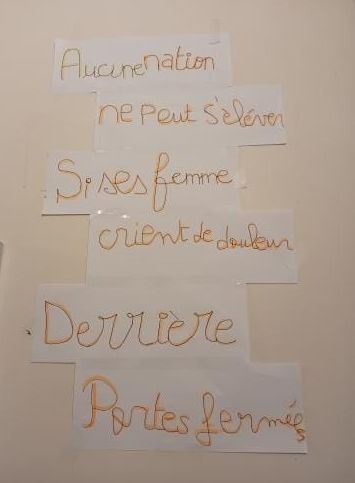 Aucune nation
ne peut s'eléver
Si ses femme
crient de douleur
Derrière
Portes fermés